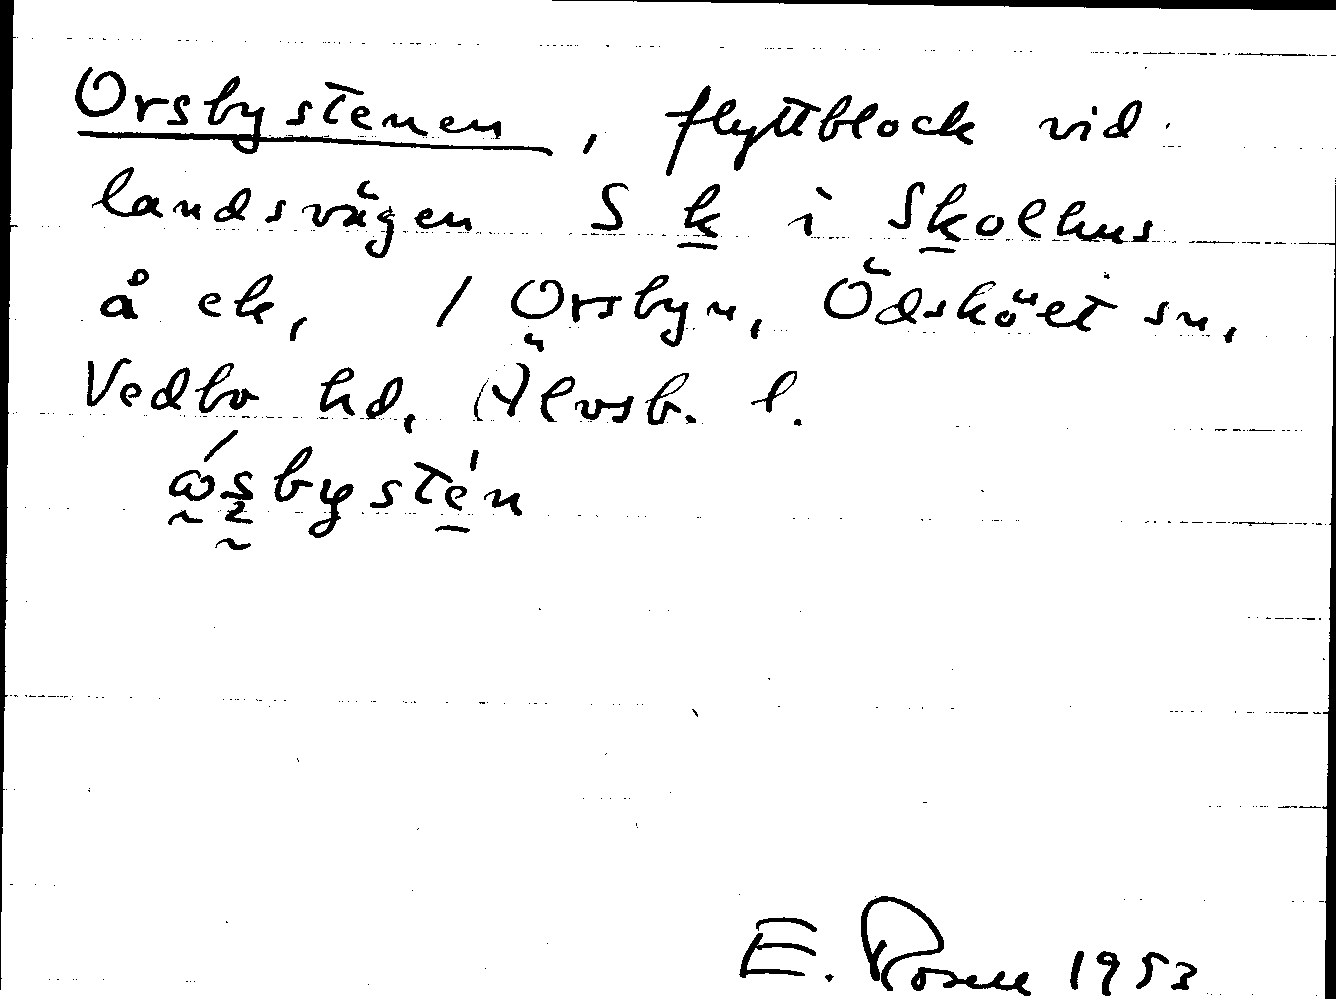 Orsbystenen, flyttblock vid
landsvägen S k i Skolhus
å ek, / Orsbyn, Ödskölt sn,
Vedbo hd, Älvsb. l.
E. Rosell 1953